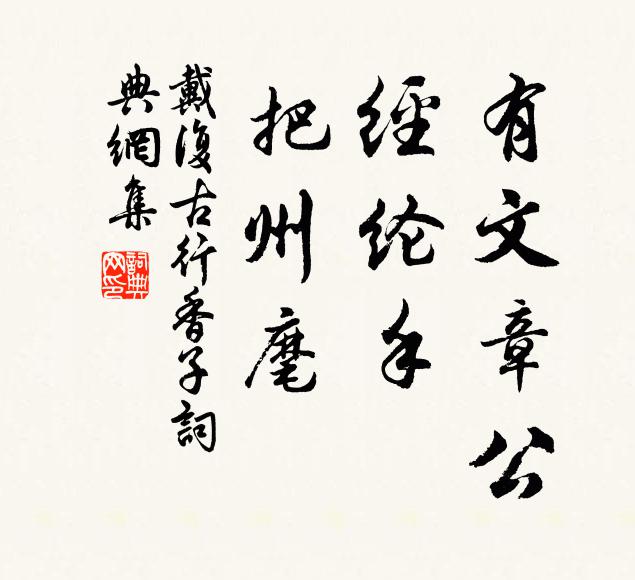 有文章公
經纶手
把州麾
戴復古行香子詞
典網集
詞典
网印